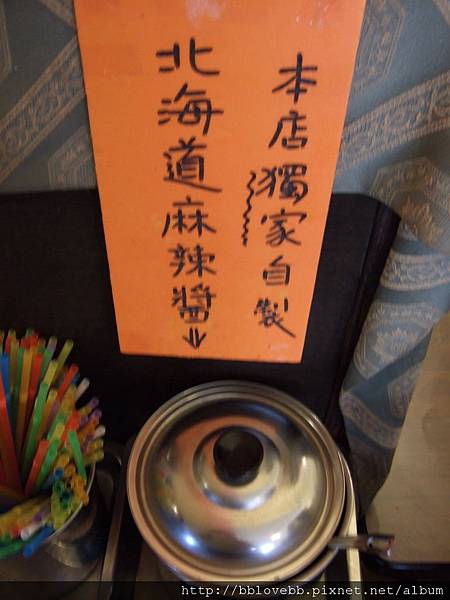 本店獨家自製
北海道麻辣醬⇓
http://bblovebb.pixnet.net/album